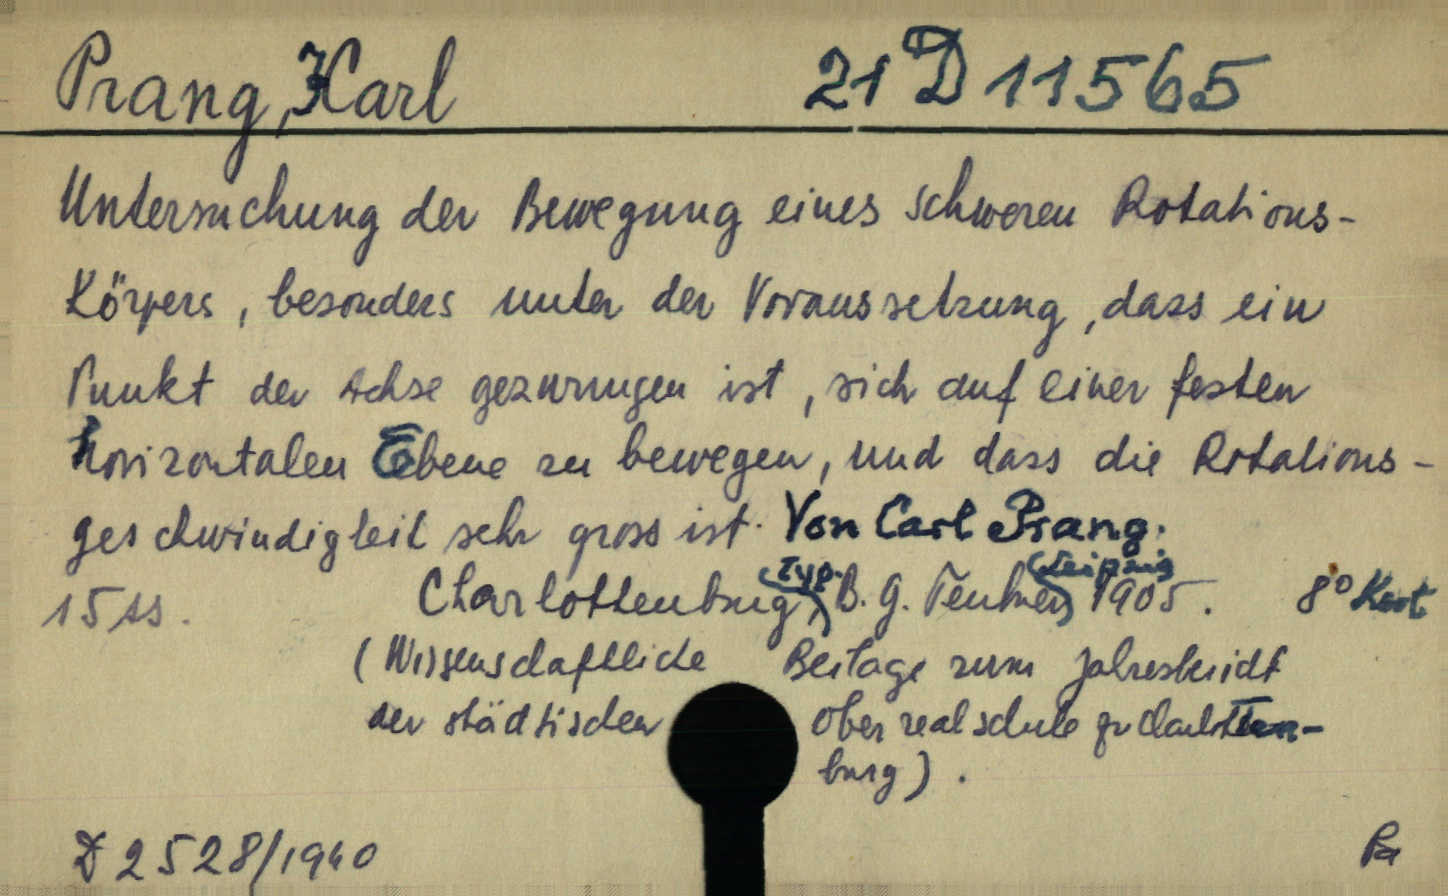 Prang, Karl 21 D 11565
Untersuchung der Bewegung eines schweren Rotations-
Körpers, besonders unter der Voraussetzung, dass ein
Punkt der Achse gezwungen ist, sich auf einer festen
horizontalen Ebene zu bewegen, und dass die Rotations-
geschwindigkeit sehr gross ist. Von Carl Prang.
15 ss. Charlottenburg (Typ. B. G. Teubner, Leipzig) 1905. 8° Kart
(Wissenschaftliche Beilage zum Jahresbericht
der städtischen Oberrealschule zu Charlotten-
burg).
D 2528/1940 Pa